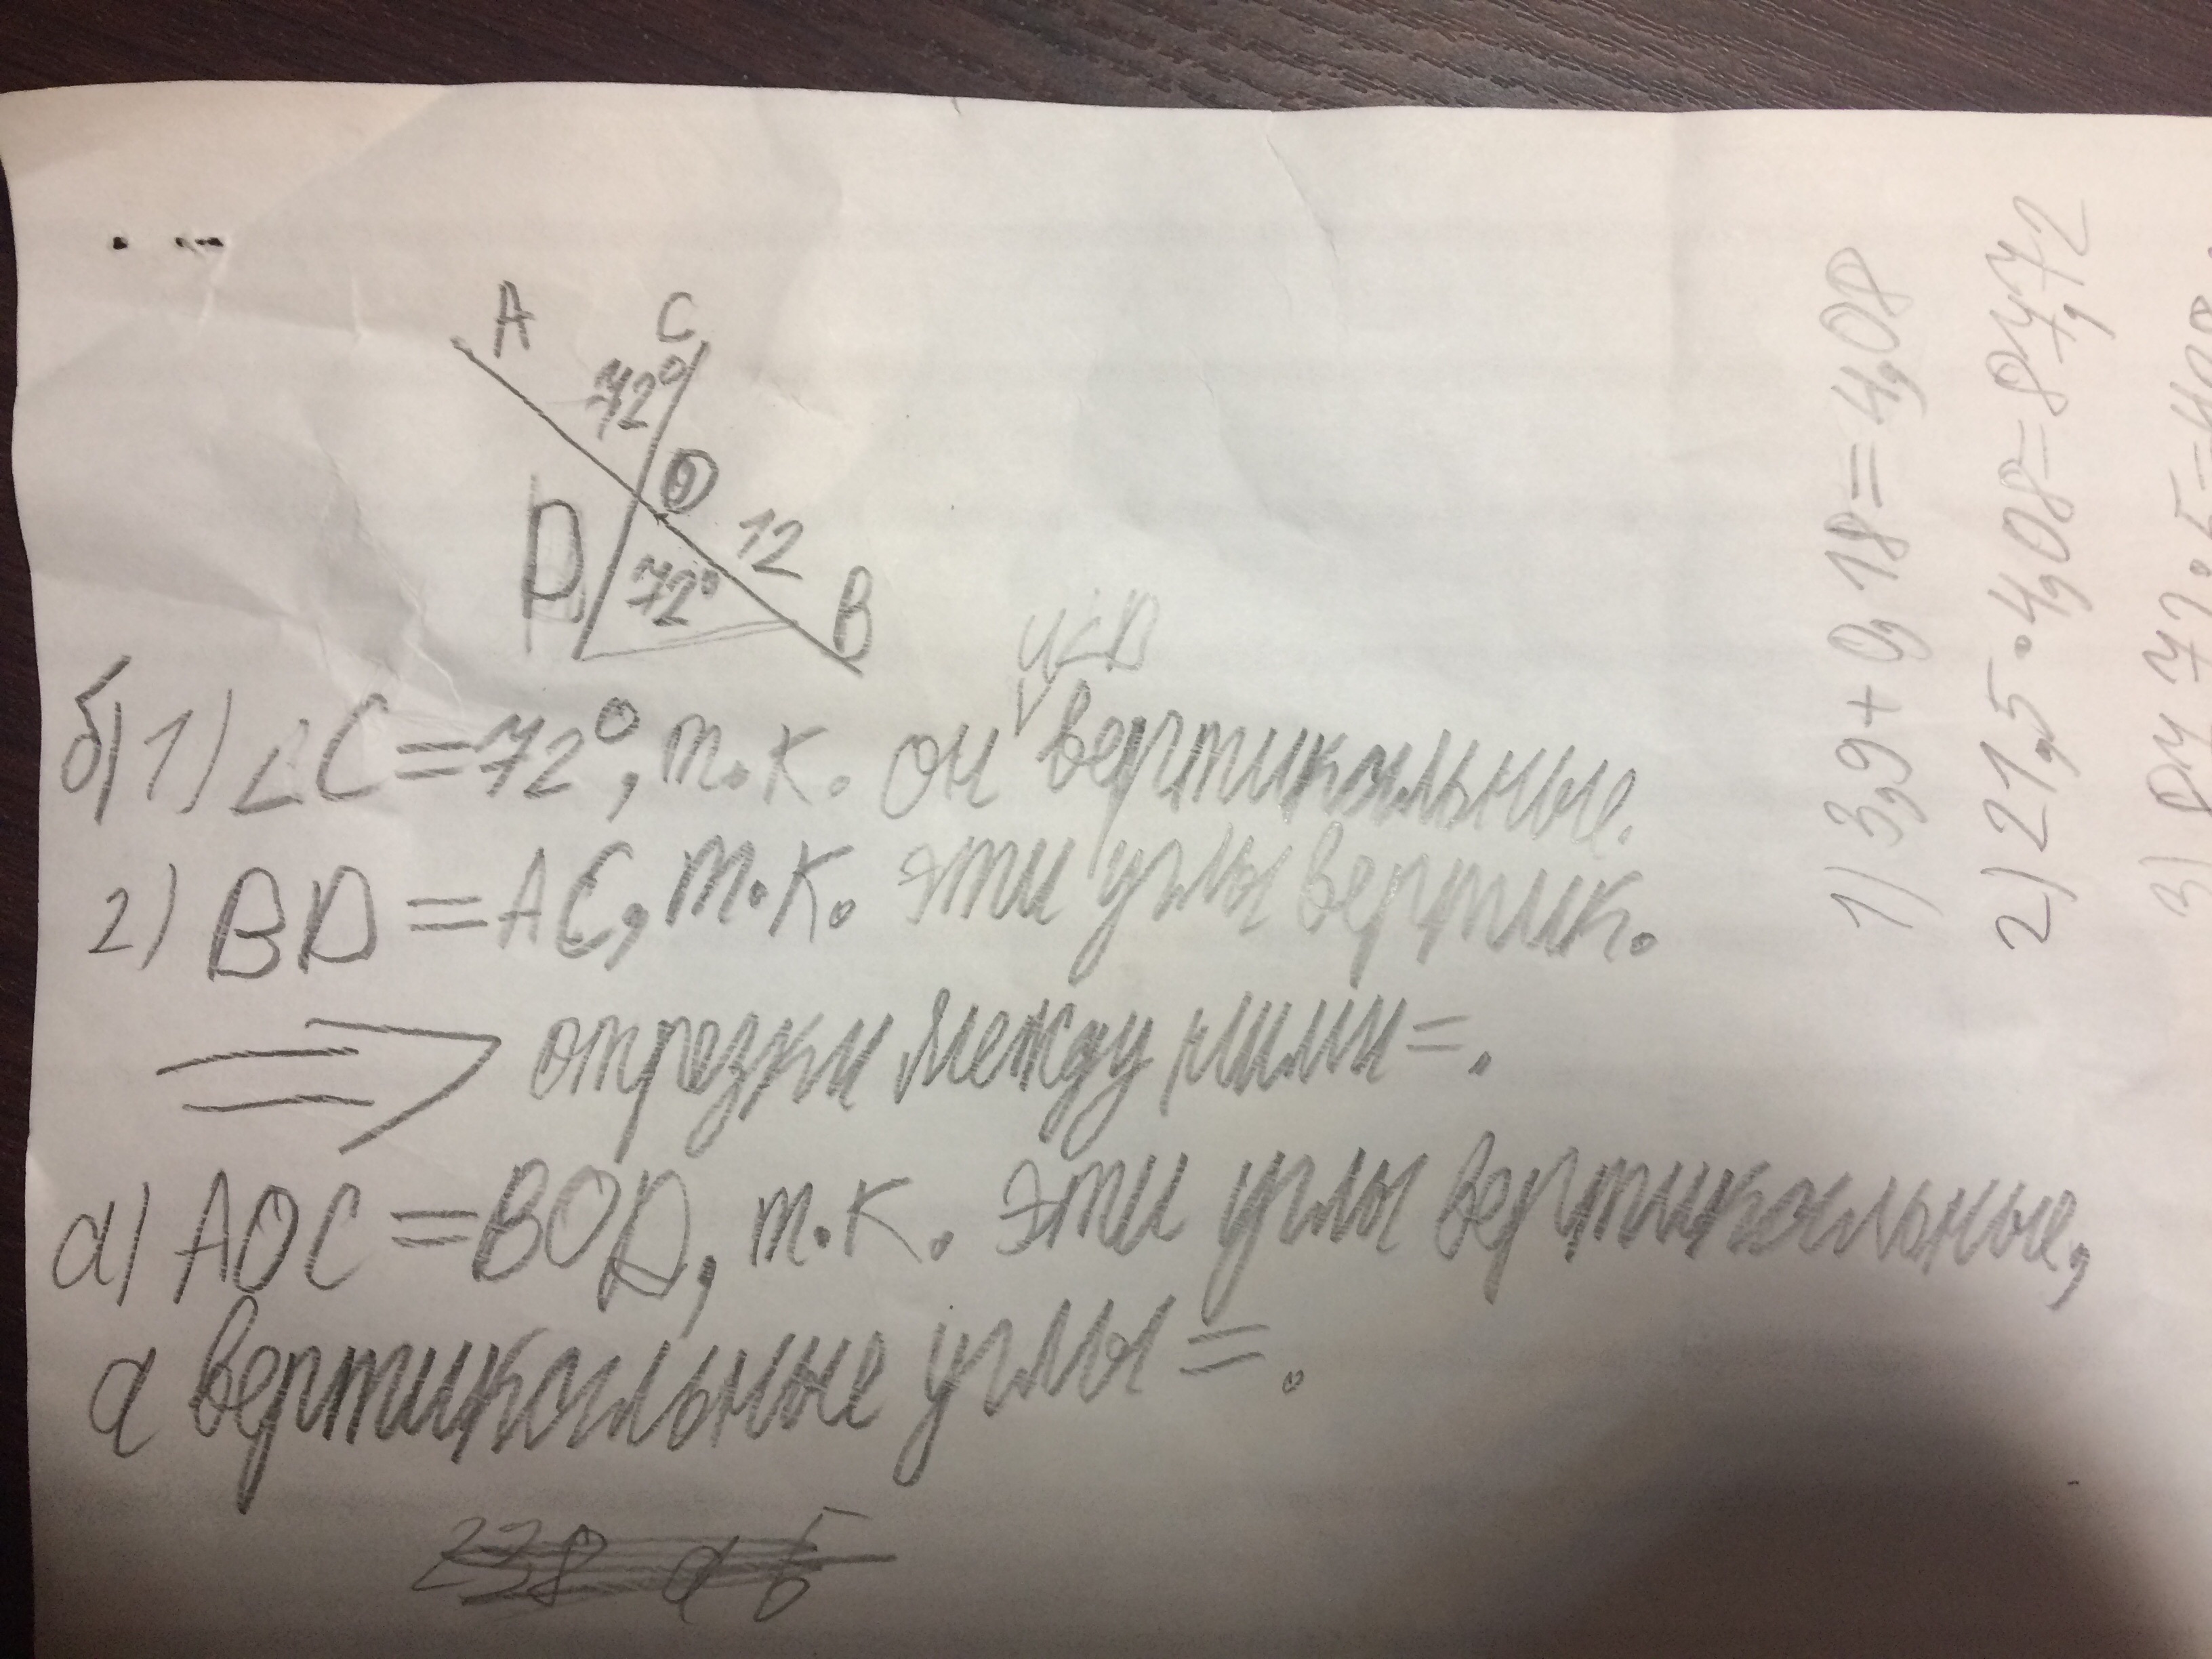 A C
72°
O
D 12
72° B
и∠D
б) 1) ∠C=72°, т.к. он вертикальные.
2) BD=AC, т.к. эти углы вертик.
⟹ отрезки между ними =.
а) AOC=BOD, т.к. эти углы вертикальные,
а вертикальные углы =.
1) 3,9+0,18=4,08
2) 21,5·4,08=87,72
3)